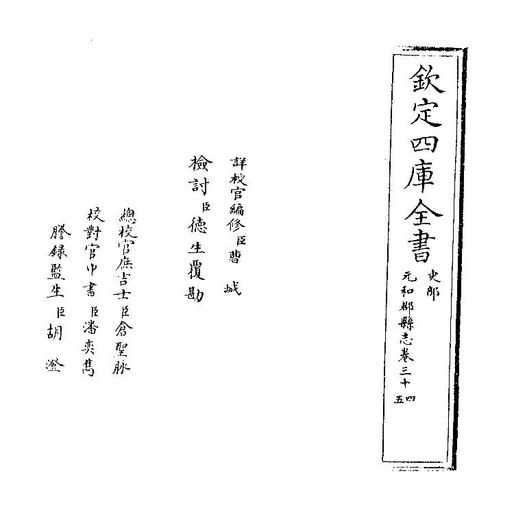 欽定四庫全書
史部
元和郡縣志卷三十四五
詳校官編修臣曹城
檢討臣德生覆勘
總校官庶吉士臣倉聖脉
校對官中書臣潘奕雋
謄錄監生臣胡澄